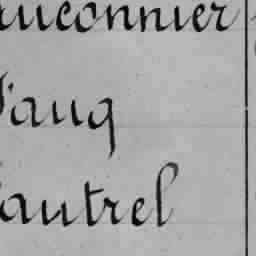 auconnier
Fauq
autrel